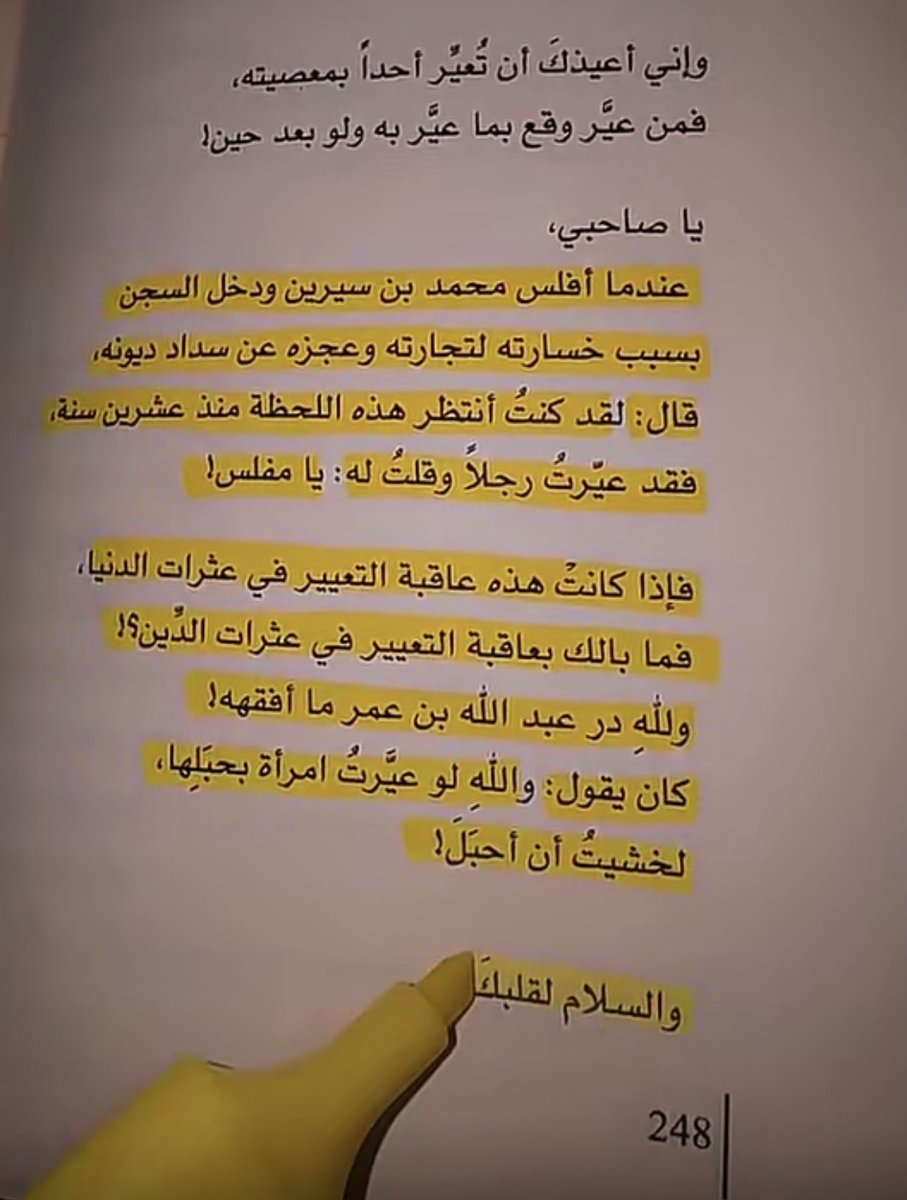 وإني أعيذكَ أن تُعيِّر أحداً بمعصيته،
فمن عيَّر وقع بما عيَّر به ولو بعد حين!
يا صاحبي،
عندما أفلس محمد بن سيرين ودخل السجن
بسبب خسارته لتجارته وعجزه عن سداد ديونه،
قال: لقد كنتُ أنتظر هذه اللحظة منذ عشرين سنة،
فقد عيّرتُ رجلاً وقلتُ له: يا مفلس!
فإذا كانتْ هذه عاقبة التعيير في عثرات الدنيا،
فما بالك بعاقبة التعيير في عثرات الدِّين؟!
وللهِ در عبد الله بن عمر ما أفقهه!
كان يقول: واللهِ لو عيَّرتُ امرأة بحبَلِها،
لخشيتُ أن أحبَلَ!
والسلام لقلبكَ
248